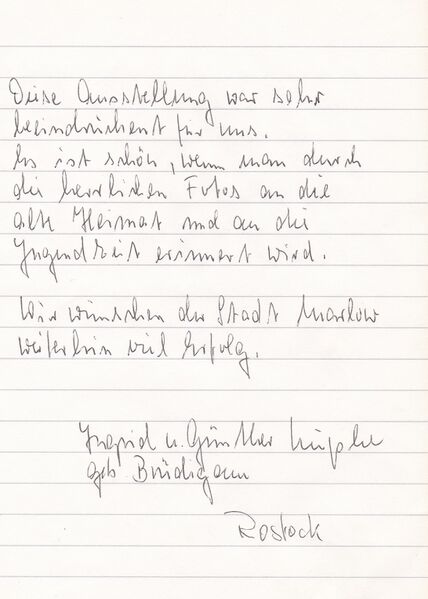 Diese Ausstellung war sehr
beeindruckent für uns.
Es ist schön, wenn man durch
die herrlichen Fotos an die
alte Heimat und an die
Jugendzeit erinnert wird.
Wir wünschen der Stadt Marlow
weiterhin viel Erfolg.
Ingrid u. Günther
geb.
Rostock